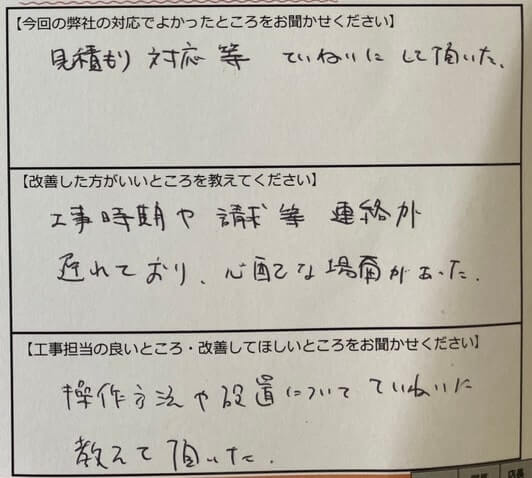 【今回の弊社の対応でよかったところをお聞かせください】
見積もり 対応 等 ていねいに して頂いた。
【改善した方がいいところを教えてください】
工事時期や 請求等 連絡が
遅れており、心配な場面があった。
【工事担当の良いところ・改善してほしいところをお聞かせください】
操作方法や設置について ていねいに
教えて頂いた。
店長